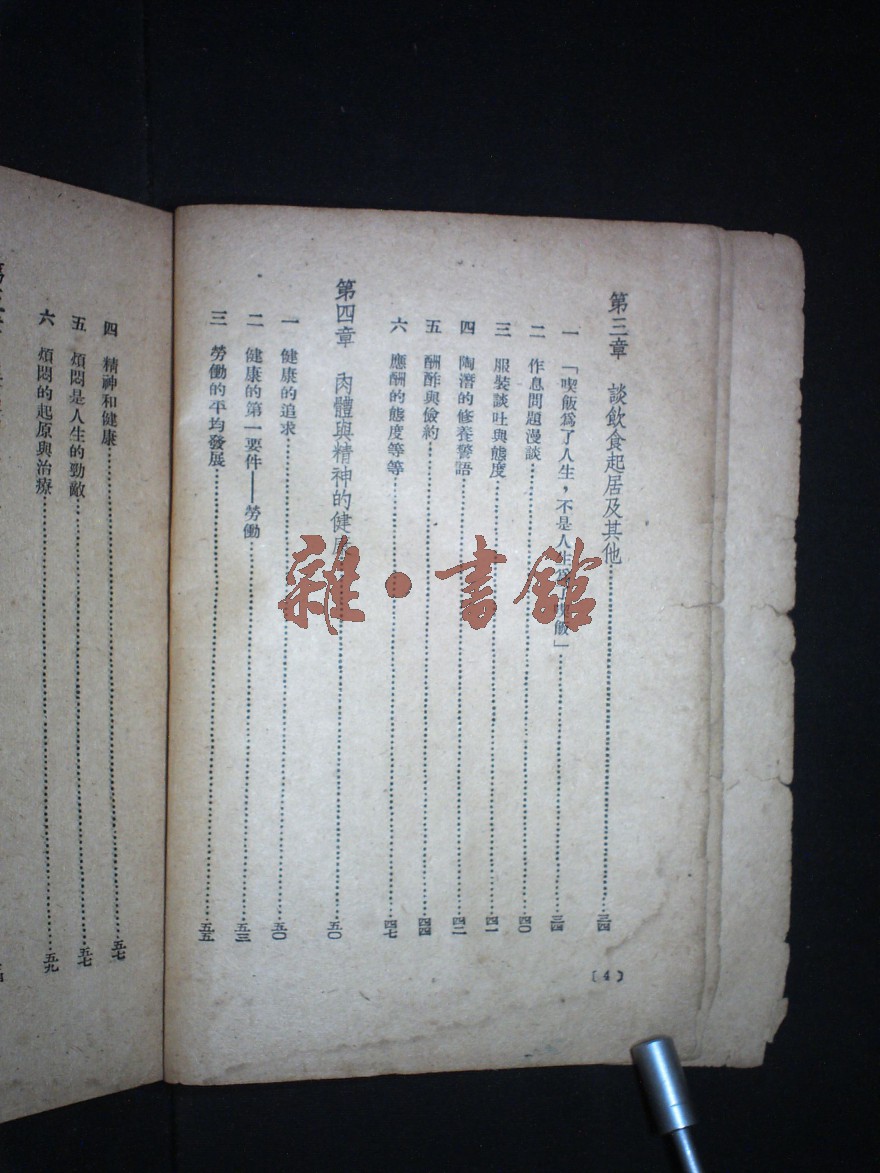 第三章　談飲食起居及其他……三四
一　「喫飯爲了人生，不是人生爲了喫飯」……三四
二　作息問題漫談……四〇
三　服裝談吐與態度……四一
四　陶潛的修養警語……四二
五　酬酢與儉約……四四
六　應酬的態度等等……四七
第四章　肉體與精神的健康……五〇
一　健康的追求……五〇
二　健康的第一要件——勞働……五三
三　勞働的平均發展……五五
〔4〕
四　精神和健康……五七
五　煩悶是人生的勁敵……五七
六　煩悶的起原與治療……五九
雜·書館